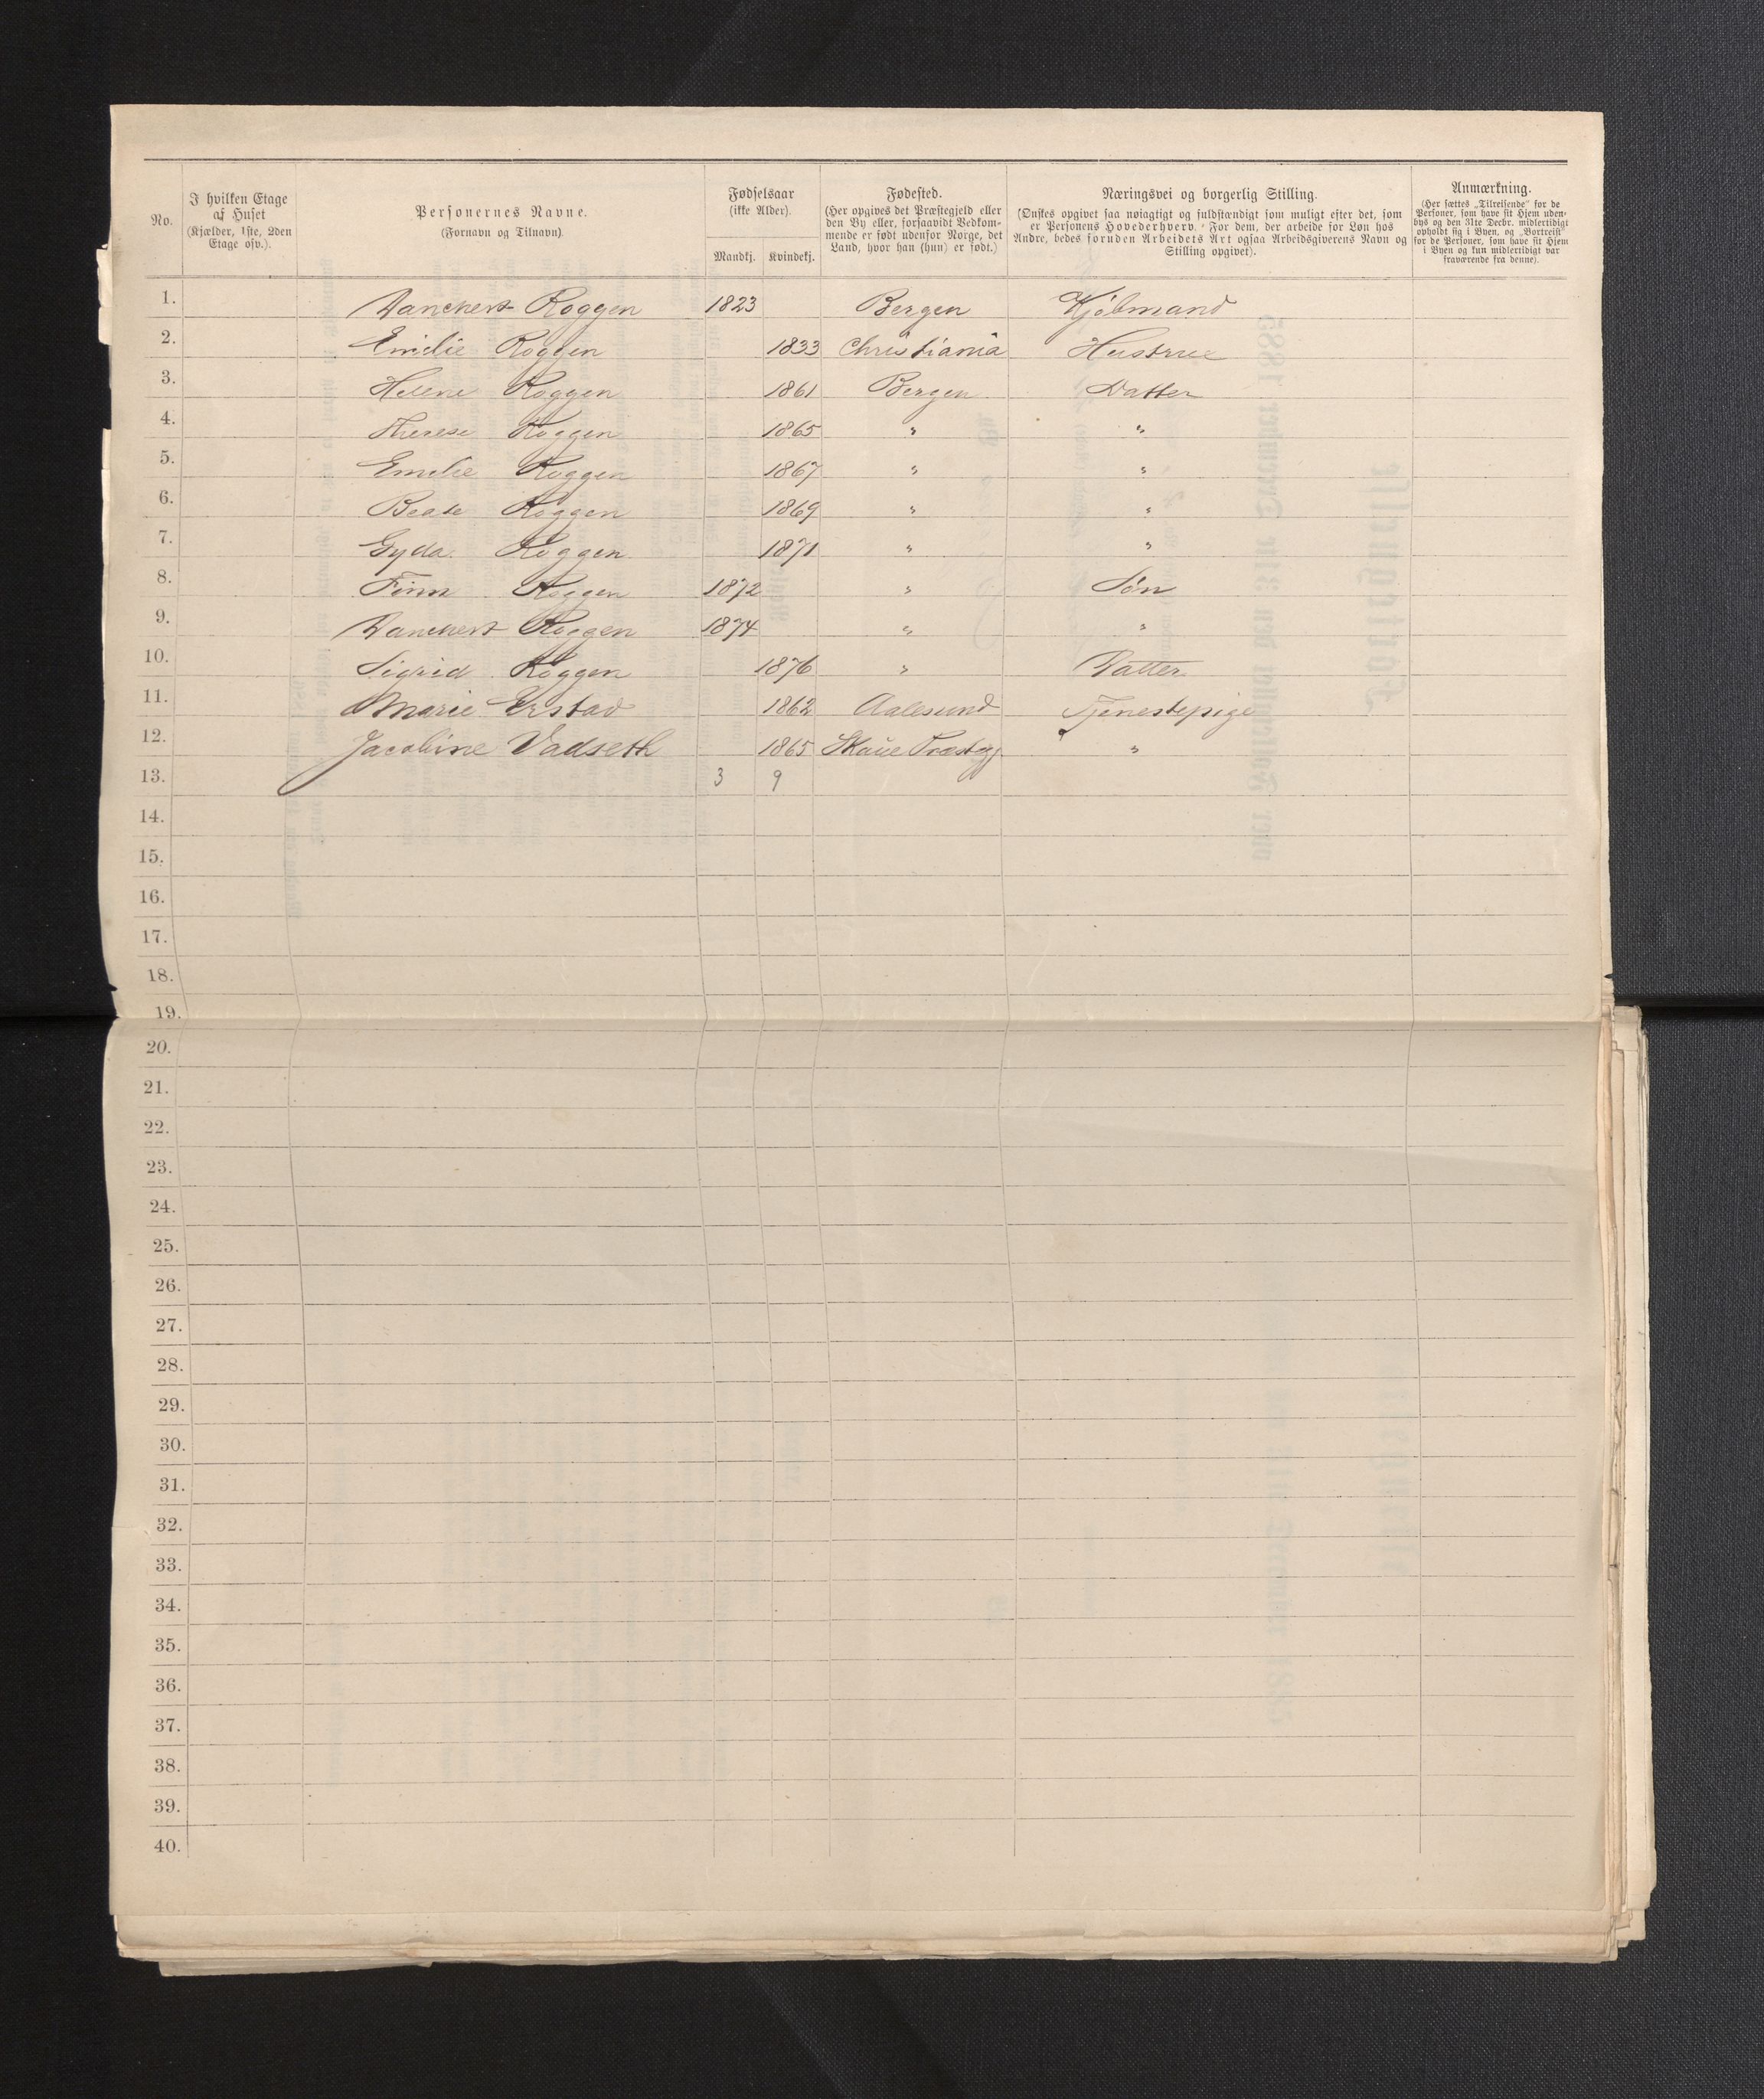 No.
I hvilken Etage af Huset (Kjælder, 1ste, 2den Etage osv.).
Personernes Navne. (Fornavn og Tilnavn).
Fødselsaar (ikke Alder).
Mandkj. Kvindekj.
Fødested. (Her opgives det Præstegjeld eller den By eller, forsaavidt Vedkommende er født udenfor Norge, det Land, hvor han (hun) er født.)
Næringsvei og borgerlig Stilling. (Ønskes opgivet saa nøiagtigt og fuldstændigt som muligt efter det, som er Personens Hovederhverv. For dem, der arbeide for Løn hos Andre, bedes foruden Arbeidets Art ogsaa Arbeidsgiverens Navn og Stilling opgivet).
Anmærkning. (Her sættes „Tilreisende" for de Personer, som have sit Hjem udenbys og den 31te Decbr. midlertidigt opholdt sig i Byen, og „Bortreist" for de Personer, som have sit Hjem i Byen og kun midlertidigt var fraværende fra denne).
1. Danckert Roggen 1823 Bergen Kjøbmand
2. Emilie Roggen 1833 Christiania Hustrue
3. Helene Roggen 1861 Bergen Datter
4. Therese Roggen 1865 " "
5. Emilie Roggen 1867 " "
6. Beate Roggen 1869 " "
7. Gyda Roggen 1871 " "
8. Finn Roggen 1872 " Søn
9. Danckert Roggen 1874 " "
10. Sigrid Roggen 1876 " Datter
11. Marie Erstad 1862 Aalesund Tjenestepige
12. Jacobine Vadseth 1865 Skaue Præstegj. "
13. 3 9
14.
15.
16.
17.
18.
19.
20.
21.
22.
23.
24.
25.
26.
27.
28.
29.
30.
31.
32.
33.
34.
35.
36.
37.
38.
39.
40.